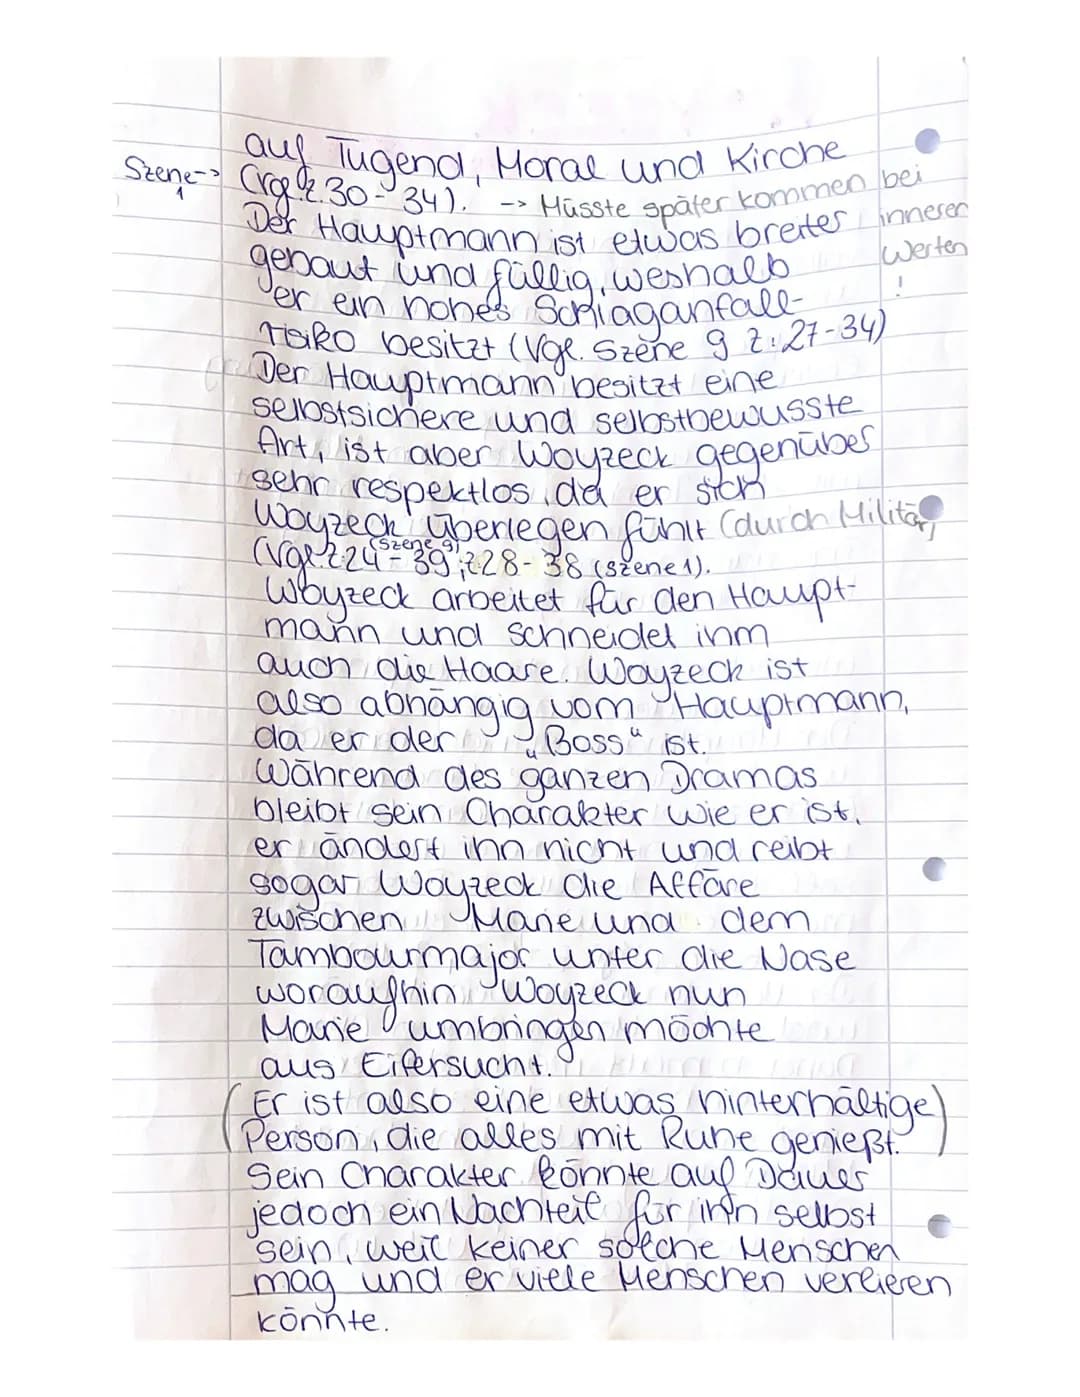 auf Tugend, Moral und Kirche
Szene-> (vgl. Z. 30 - 34). -> Müsste später kommen bei
1
Der Hauptmann ist etwas breiter inneren
gebaut und füllig, weshalb Werten
er ein hohes Schlaganfall- !
risiko besitzt (Vgl. Szene 9 Z: 27-34)
Der Hauptmann besitzt eine
selbstsichere und selbstbewusste
Art, ist aber Woyzeck gegenüber
sehr respektlos, da er sich
Woyzeck überlegen fühlt (durch Militär)
(Szene 9)
(Vgl. Z. 24 - 39; Z 28 - 38 (Szene 1).
Woyzeck arbeitet für den Haupt-
mann und schneidet ihm
auch die Haare. Woyzeck ist
also abhängig vom Hauptmann,
da er der „Boss“ ist.
Während des ganzen Dramas
bleibt sein Charakter wie er ist,
er ändert ihn nicht und reibt
sogar Woyzeck die Affäre
zwischen Marie und dem
Tambourmajor unter die Nase
woraufhin Woyzeck nun
Marie umbringen möchte
aus Eifersucht.
(Er ist also eine etwas hinterhältige)
Person, die alles mit Ruhe genießt.
Sein Charakter könnte auf Dauer
jedoch ein Nachteil für ihn selbst
sein, weil keiner solche Menschen
mag und er viele Menschen verlieren
könnte.